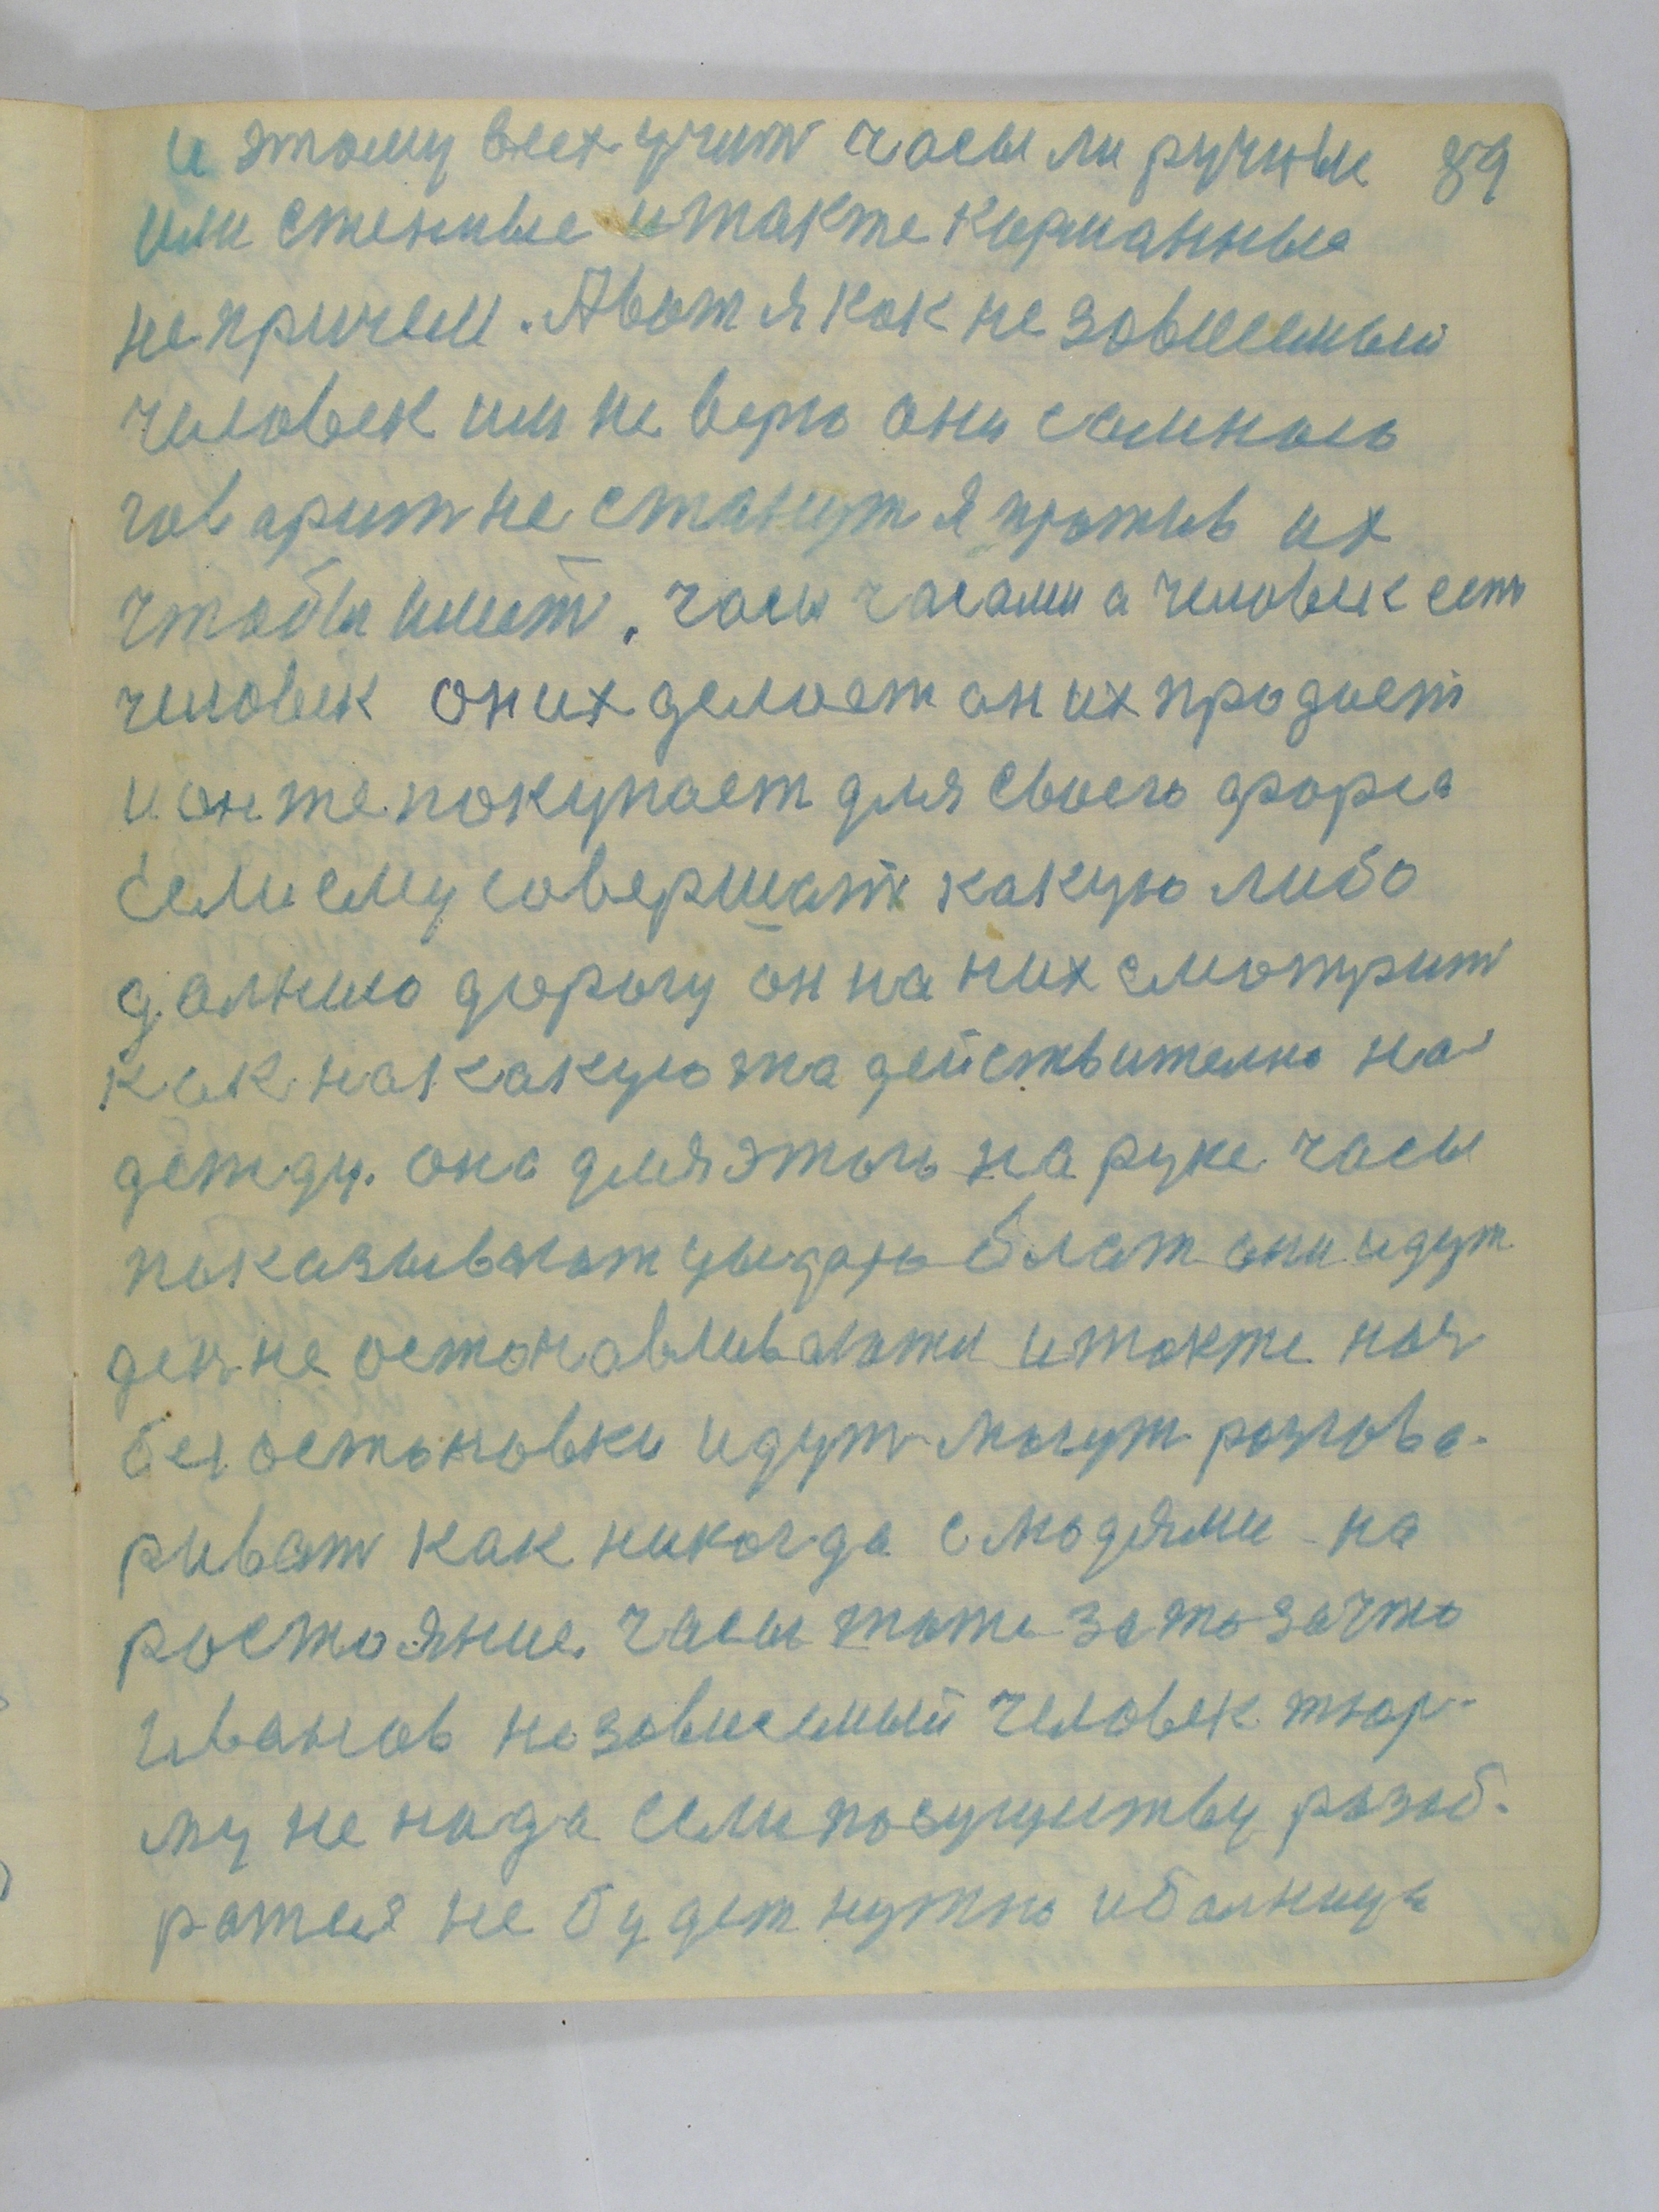 и этому всех учит часы ли ручные 89
или стенные и также карманные
не причем. А вот я как не зависемый
человек им не верю они самною
говарит не станут я против их
чтобы имет. часы часами а человек есть
человек он их делает он их продает
и он же покупает для своего форса
если ему совершат какую либо
далнюю дорогу он на них смотрит
как на какую та действително на
дежду. она для этого на руке часы
показывают они идут
ден не остонавливаюти и также ноч
без остоновки идут могут разгова-
риват как никогда с людями на
ростояние. часы тоже за то за что
Иванов не зависемый человек тюр-
му не нада если посуществу разоб-
ратся не будет нужно и болница